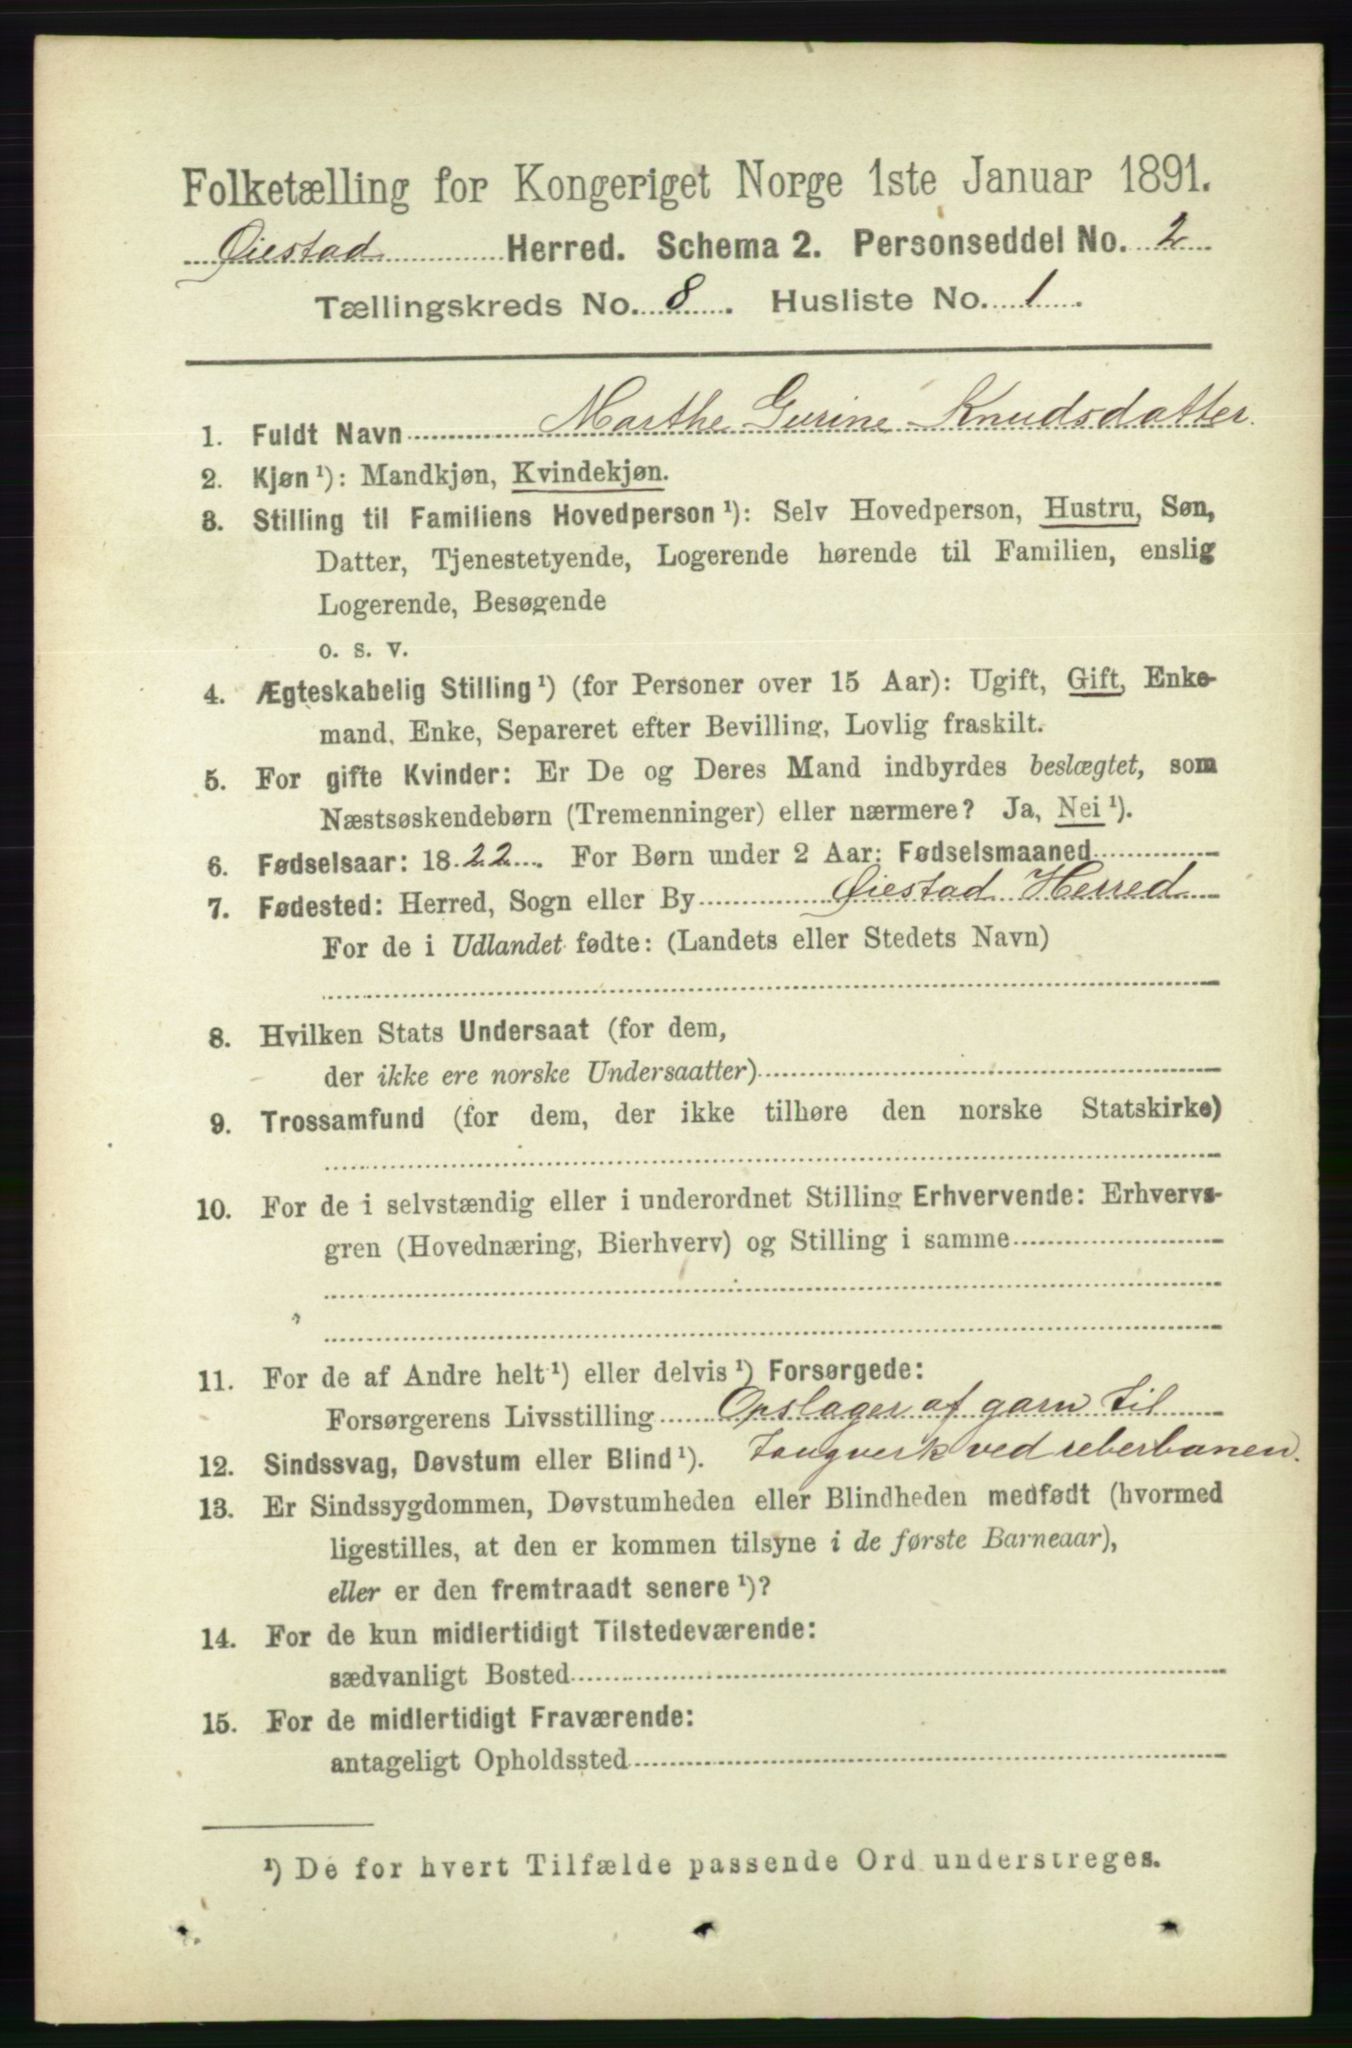 Folketælling for Kongeriget Norge 1ste Januar 1891.
Øiestad Herred. Schema 2. Personseddel No. 2
Tællingskreds No. 8. Husliste No. 1.
1. Fuldt Navn Marthe Gurine Knudsdatter.
2. Kjøn¹): Mandkjøn, Kvindekjøn.
3. Stilling til Familiens Hovedperson¹): Selv Hovedperson, Hustru, Søn,
Datter, Tjenestetyende, Logerende hørende til Familien, enslig
Logerende, Besøgende
o. s. v.
4. Ægteskabelig Stilling¹) (for Personer over 15 Aar): Ugift, Gift, Enke-
mand, Enke, Separeret efter Bevilling, Lovlig fraskilt.
5. For gifte Kvinder: Er De og Deres Mand indbyrdes beslægtet, som
Næstsøskendebørn (Tremenninger) eller nærmere? Ja, Nei¹).
6. Fødselsaar: 1822. For Børn under 2 Aar: Fødselsmaaned
7. Fødested: Herred, Sogn eller By Øiestad Herred
For de i Udlandet fødte: (Landets eller Stedets Navn)
8. Hvilken Stats Undersaat (for dem,
der ikke ere norske Undersaatter)
9. Trossamfund (for dem, der ikke tilhøre den norske Statskirke)
10. For de i selvstændig eller i underordnet Stilling Erhvervende: Erhvervs-
gren (Hovednæring, Bierhverv) og Stilling i samme
11. For de af Andre helt¹) eller delvis¹) Forsørgede:
Forsørgerens Livsstilling Opslager af garn til
12. Sindssvag, Døvstum eller Blind¹). Tougverk ved reberbanen.
13. Er Sindssygdommen, Døvstumheden eller Blindheden medfødt (hvormed
ligestilles, at den er kommen tilsyne i de første Barneaar),
eller er den fremtraadt senere¹)?
14. For de kun midlertidigt Tilstedeværende:
sædvanligt Bosted
15. For de midlertidigt Fraværende:
antageligt Opholdssted
¹) De for hvert Tilfælde passende Ord understreges.